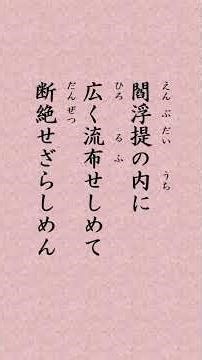 閻浮提の内に
えんぶだい うち
広く流布せしめて
ひろ るふ
断絶せざらしめん
だんぜつ